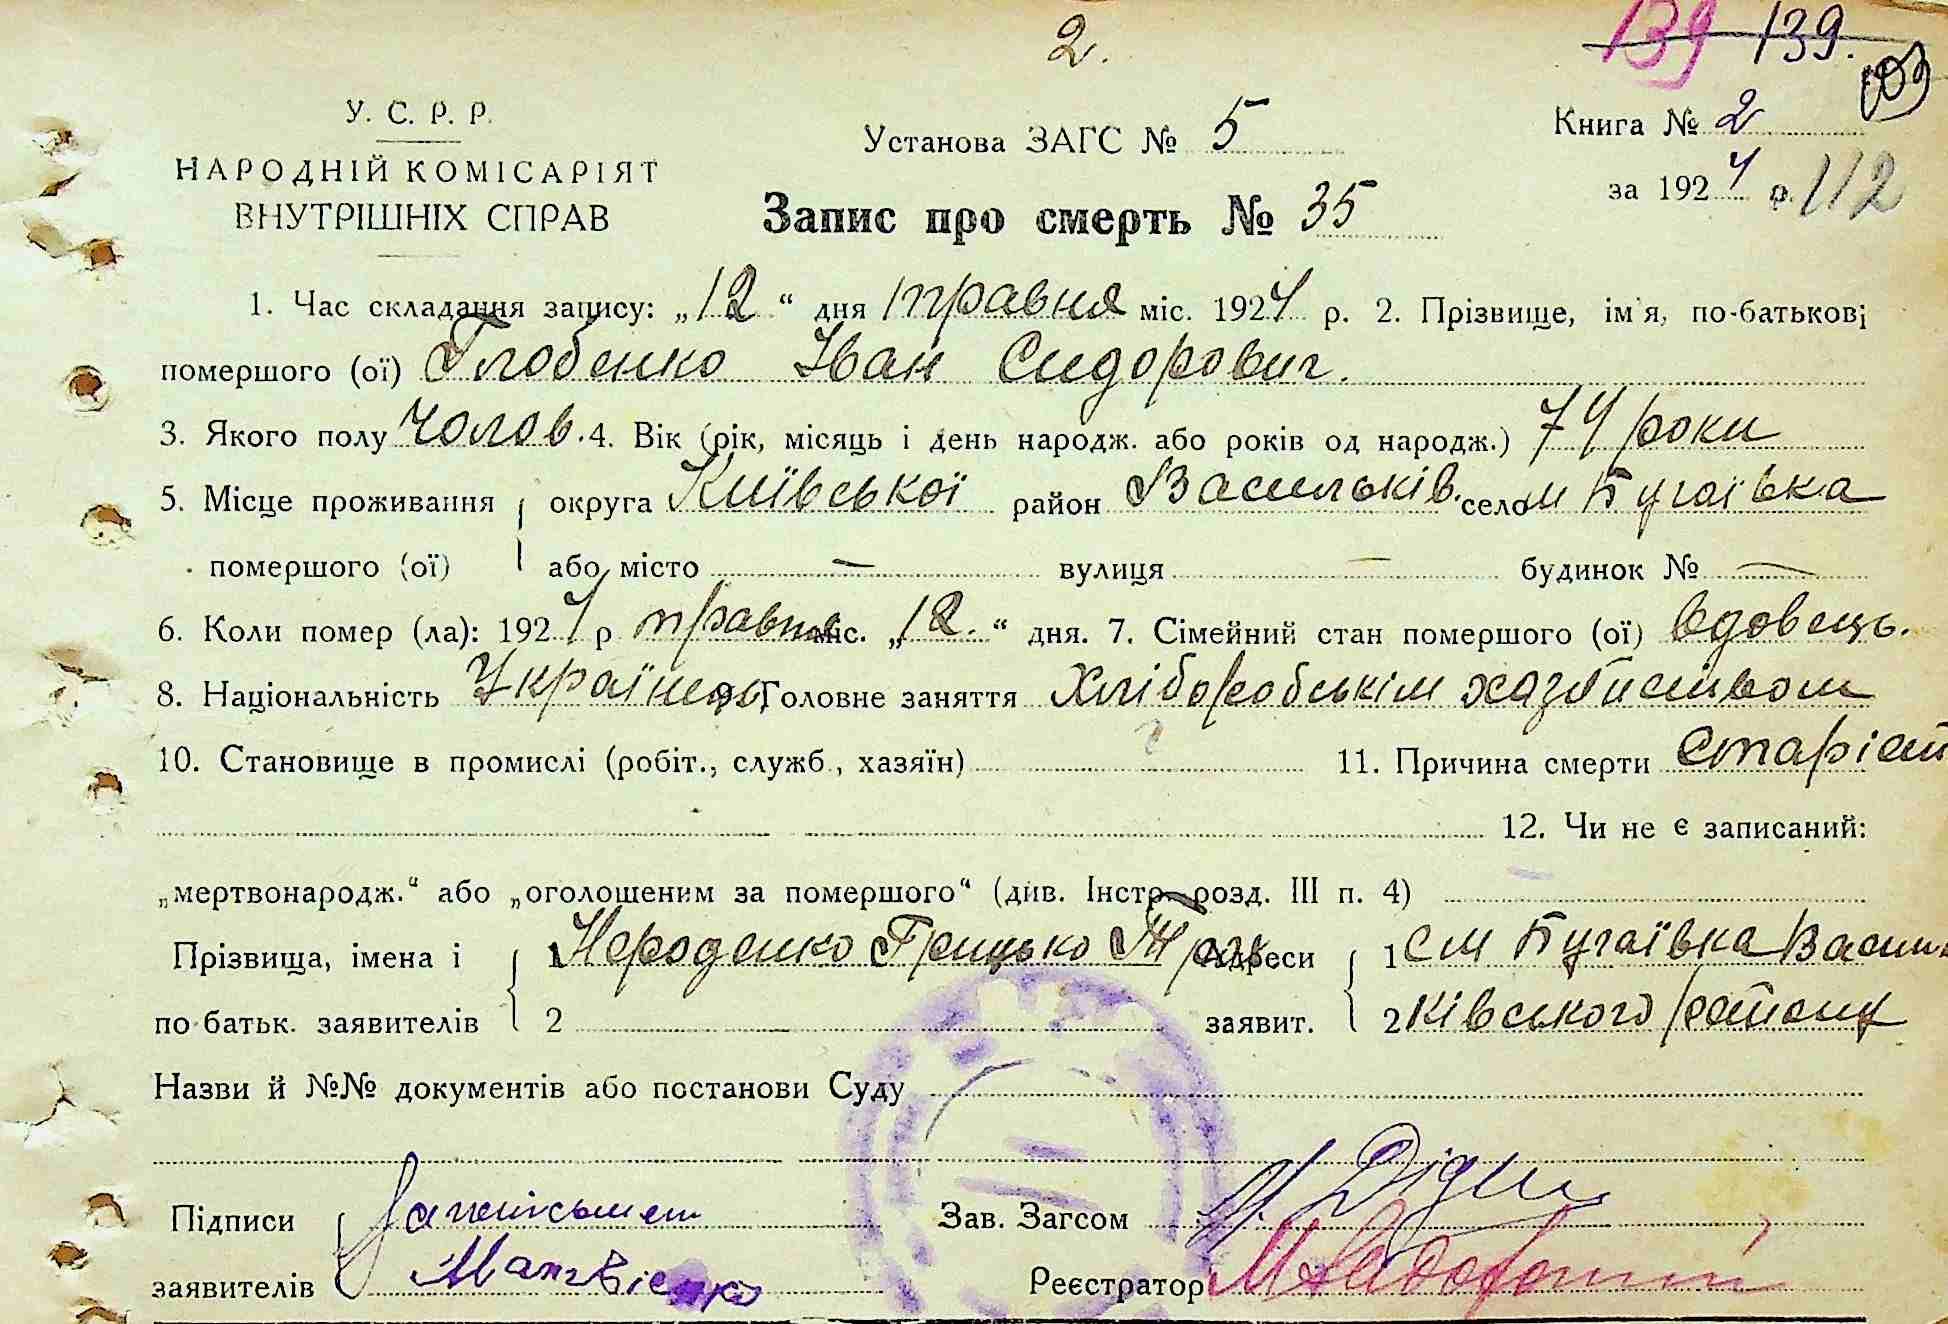 2.
139 139.
У. С. Р. Р.
НАРОДНІЙ КОМІСАРІЯТ
ВНУТРІШНІХ СПРАВ
Установа ЗАГС № 5
Запис про смерть № 35
Книга № 2
за 1924 р. 112
1. Час складання запису: „12“ дня травня міс. 1924 р. 2. Прізвище, ім'я, по-батькові
помершого (ої) Глобенко Іван Сидорович.
3. Якого полу чолов. 4. Вік (рік, місяць і день народж. або років од народж.) 74 роки
5. Місце проживання округа Київської район Васильків. село м Бугаївка
помершого (ої) або місто — вулиця — будинок № —
6. Коли помер (ла): 1924 р травня міс. „12.“ дня. 7. Сімейний стан помершого (ої) вдовець.
8. Національність Українець 9. Головне заняття хліборобськім хазяйством
10. Становище в промислі (робіт., служб., хазяїн) 11. Причина смерти старіст
12. Чи не є записаний:
„мертвонародж.“ або „оголошеним за помершого“ (див. Інстр. розд. III п. 4)
Прізвища, імена і 1 Нероденко Грицько Адреси 1 см Бугаївка Василь
по-батьк. заявителів 2 заявит. 2 ківського району
Назви й №№ документів або постанови Суду
Підписи Зав. Загсом
заявителів Матвієнко Реєстратор